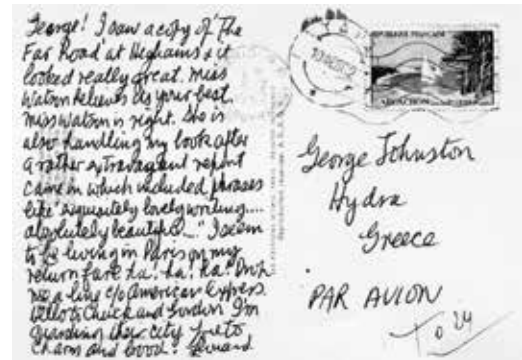 George! I saw a copy of 'The
Far Road' at Heghams & it
looked really great. Miss
Watson believes its your best.
Miss Watson is right. She is
also handling my book after
a rather extravagant report
came in which included phrases
like "exquisitely lovely writing....
absolutely beautiful..." I seem
to be living in Paris on my
return fare ha! ha! ha! Drop
me a line c/o American Express.
Hello to Chuck and Gordon I'm
guarding their city. Love to
Charm and brood! Leonard
REPUBLIQUE FRANÇAISE
ARCACHON
George Johnston
Hydra
Greece
PAR AVION
To 24